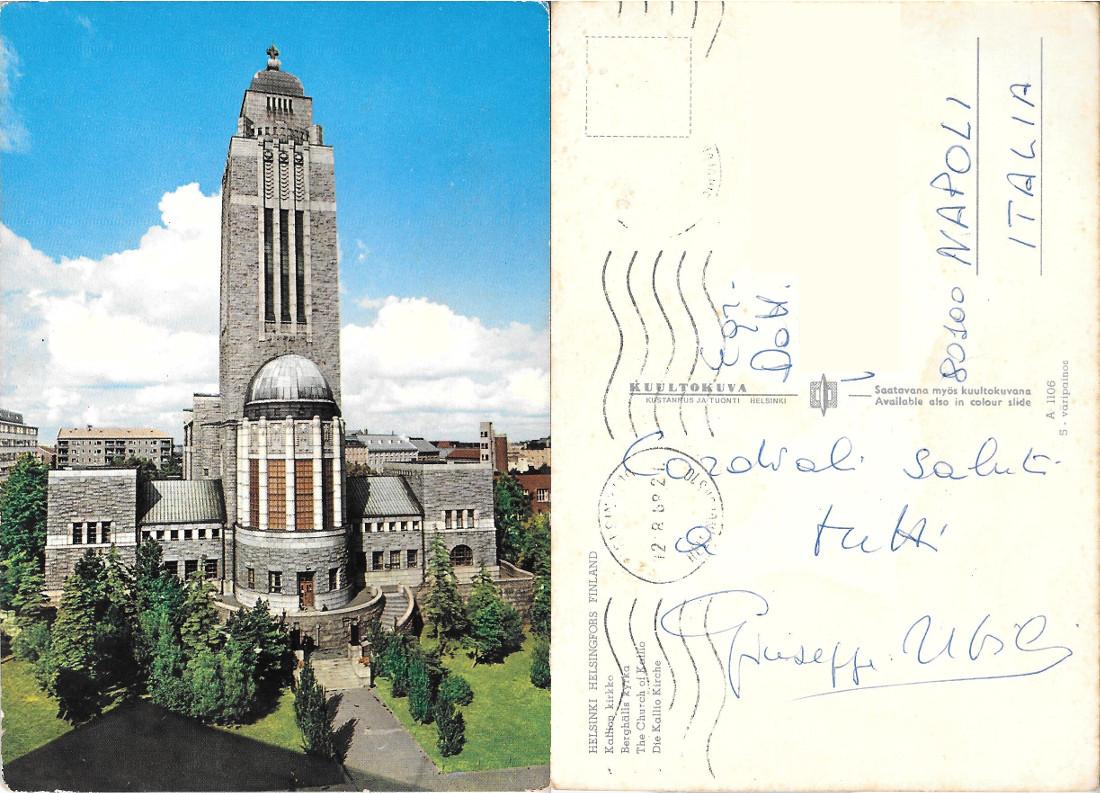 Egr.
Dott.
80100 NAPOLI
ITALIA
KUULTOKUVA
KUSTANNUS JA TUONTI HELSINKI
Saatavana myös kuultokuvana
Available also in colour slide
A 1106
5 - väripainos
Cordiali saluti
a tutti
Giuseppe
12.8.69.21
HELSINKI HELSINGFORS FINLAND
Kallion kirkko
Berghälls kyrka
The Church of Kallio
Die Kallio Kirche